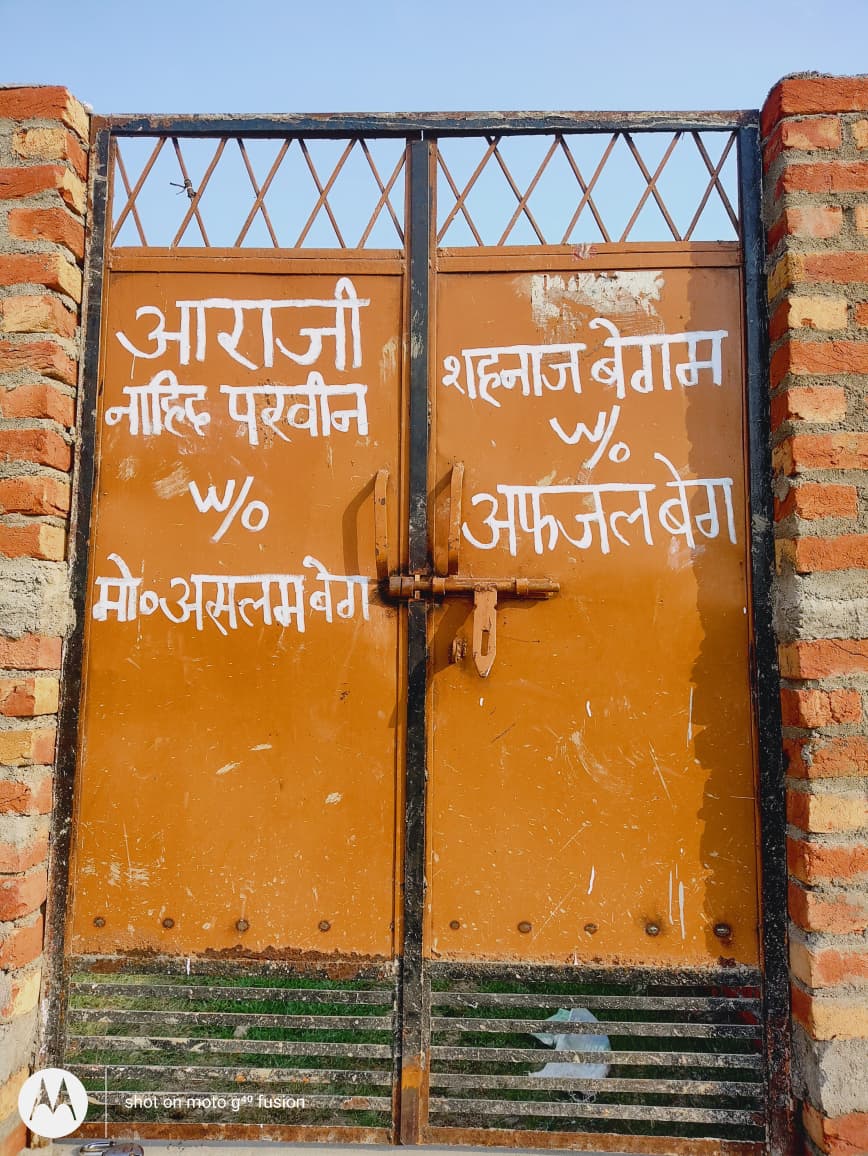 आराजी
नाहिद परवीन
W/O
मो० असलम बेग
शहनाज बेगम
W/O
अफजल बेग
shot on moto g⁴⁰ fusion